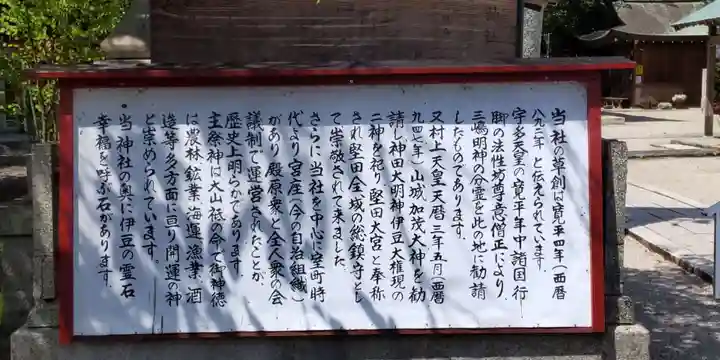 当社の草創は寛平四年(西暦
八九二年)と伝えられています。
宇多天皇の寛平年中諸国行
脚の法性坊尊意僧正により、
三嶋明神の分霊を此の地に勧請
したものであります。
又村上天皇天暦三年五月(西暦
九四七年)山城加茂大神を勧
請し神田大明神伊豆大権現の
二神を祀り堅田大宮と奉称
され堅田全域の総鎮守とし
て崇敬されて来ました。
さらに当社を中心に室町時
代より宮座(今の自治組織)
があり殿原衆と全人衆の会
議制で運営されたことが
歴史上明らかであります。
主祭神は大山祗の命で御神徳
は農林、鉱業、海運、漁業、酒
造等多方面に亘り開運の神
と崇められています。
。当神社の奥に伊豆の霊石
幸福を呼ぶ石があります。